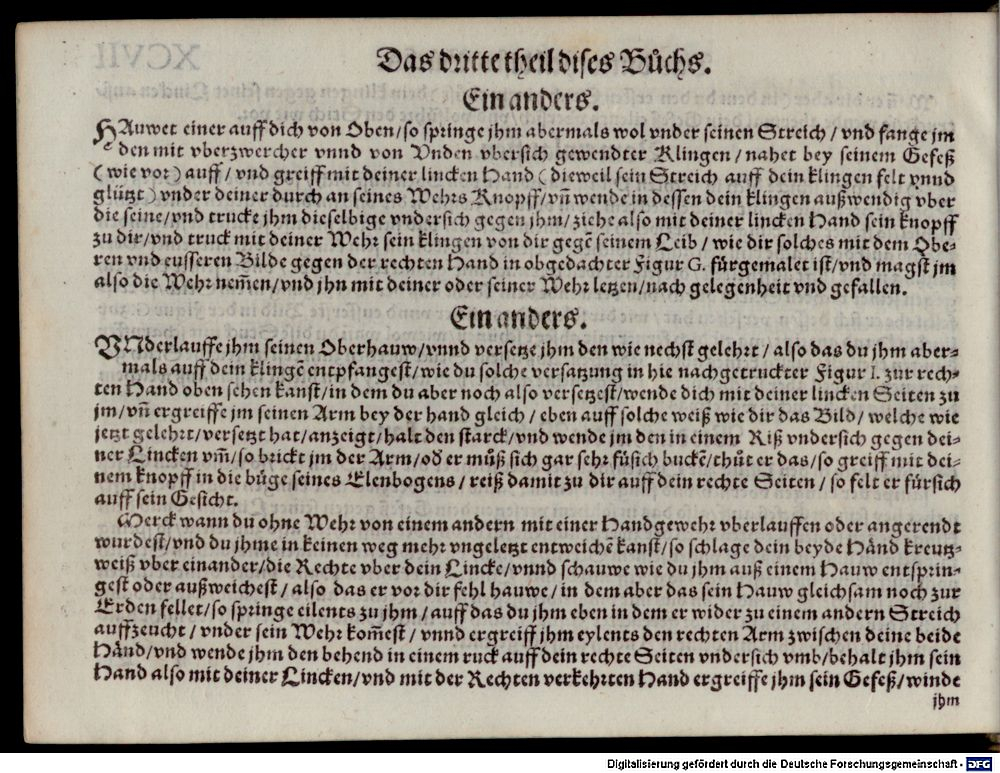 Das dritte theil dises Bůchs.
Ein anders.
HAuwet einer auff dich von Oben/so springe jhm abermals wol vnder seinen Streich/vnd fange jm
den mit vberzwercher vnnd von Vnden vbersich gewendter Klingen/nahet bey seinem Gefeß
(wie vor) auff/vnd greiff mit deiner lincken Hand (dieweil sein Streich auff dein klingen felt vnnd
glützt) vnder deiner durch an seines Wehrs Knopff/vñ wende in dessen dein klingen außwendig vber
die seine/vnd trucke jhm dieselbige vndersich gegen jhm/ziehe also mit deiner lincken Hand sein knopff
zu dir/vnd truck mit deiner Wehr sein klingen von dir gegẽ seinem Leib/wie dir solches mit dem Obe⸗
ren vnd eusseren Bilde gegen der rechten Hand in obgedachter Figur G. fürgemalet ist/vnd magst jm
also die Wehr nem̃en/vnd jhn mit deiner oder seiner Wehr letzen/nach gelegenheit vnd gefallen.
Ein anders.
VNderlauffe jhm seinen Oberhauw/vnnd versetze jhm den wie nechst gelehrt/also das du jhm aber⸗
mals auff dein klingẽ entpfangest/wie du solche versatzung in hie nachgetruckter Figur I. zur rech⸗
ten Hand oben sehen kanst/in dem du aber noch also versetzest/wende dich mit deiner lincken Seiten zu
jm/vñ ergreiffe jm seinen Arm bey der hand gleich/eben auff solche weiß wie dir das Bild/welche wie
jetzt gelehrt/versetzt hat/anzeigt/halt den starck/vnd wende jm den in einem Riß vndersich gegen dei⸗
ner Lincken vm̃/so brickt jm der Arm/od̕ er můß sich gar sehr füsich buckẽ/thůt er das/so greiff mit dei⸗
nem knopff in die büge seines Elenbogens/reiß damit zu dir auff dein rechte Seiten/so felt er fürsich
auff sein Gesicht.
Merck wann du ohne Wehr von einem andern mit einer Handgewehr vberlauffen oder angerendt
wurdest/vnd du jhme in keinen weg mehr vngeletzt entweichẽ kanst/so schlage dein beyde Händ kreutz⸗
weiß vber einander/die Rechte vber dein Lincke/vnnd schauwe wie du jhm auß einem Hauw entsprin⸗
gest oder außweichest/also das er vor dir fehl hauwe/in dem aber das sein Hauw gleichsam noch zur
Erden fellet/so springe eilents zu jhm/auff das du jhm eben in dem er wider zu einem andern Streich
auffzeucht/vnder sein Wehr kom̃est/vnnd ergreiff jhm eylents den rechten Arm zwischen deine beide
Händ/vnd wende jhm den behend in einem ruck auff dein rechte Seiten vndersich vmb/behalt jhm sein
Hand also mit deiner Lincken/vnd mit der Rechten verkehrten Hand ergreiffe jhm sein Gefeß/winde
jhm
Digitalisierung gefördert durch die Deutsche Forschungsgemeinschaft - DFG